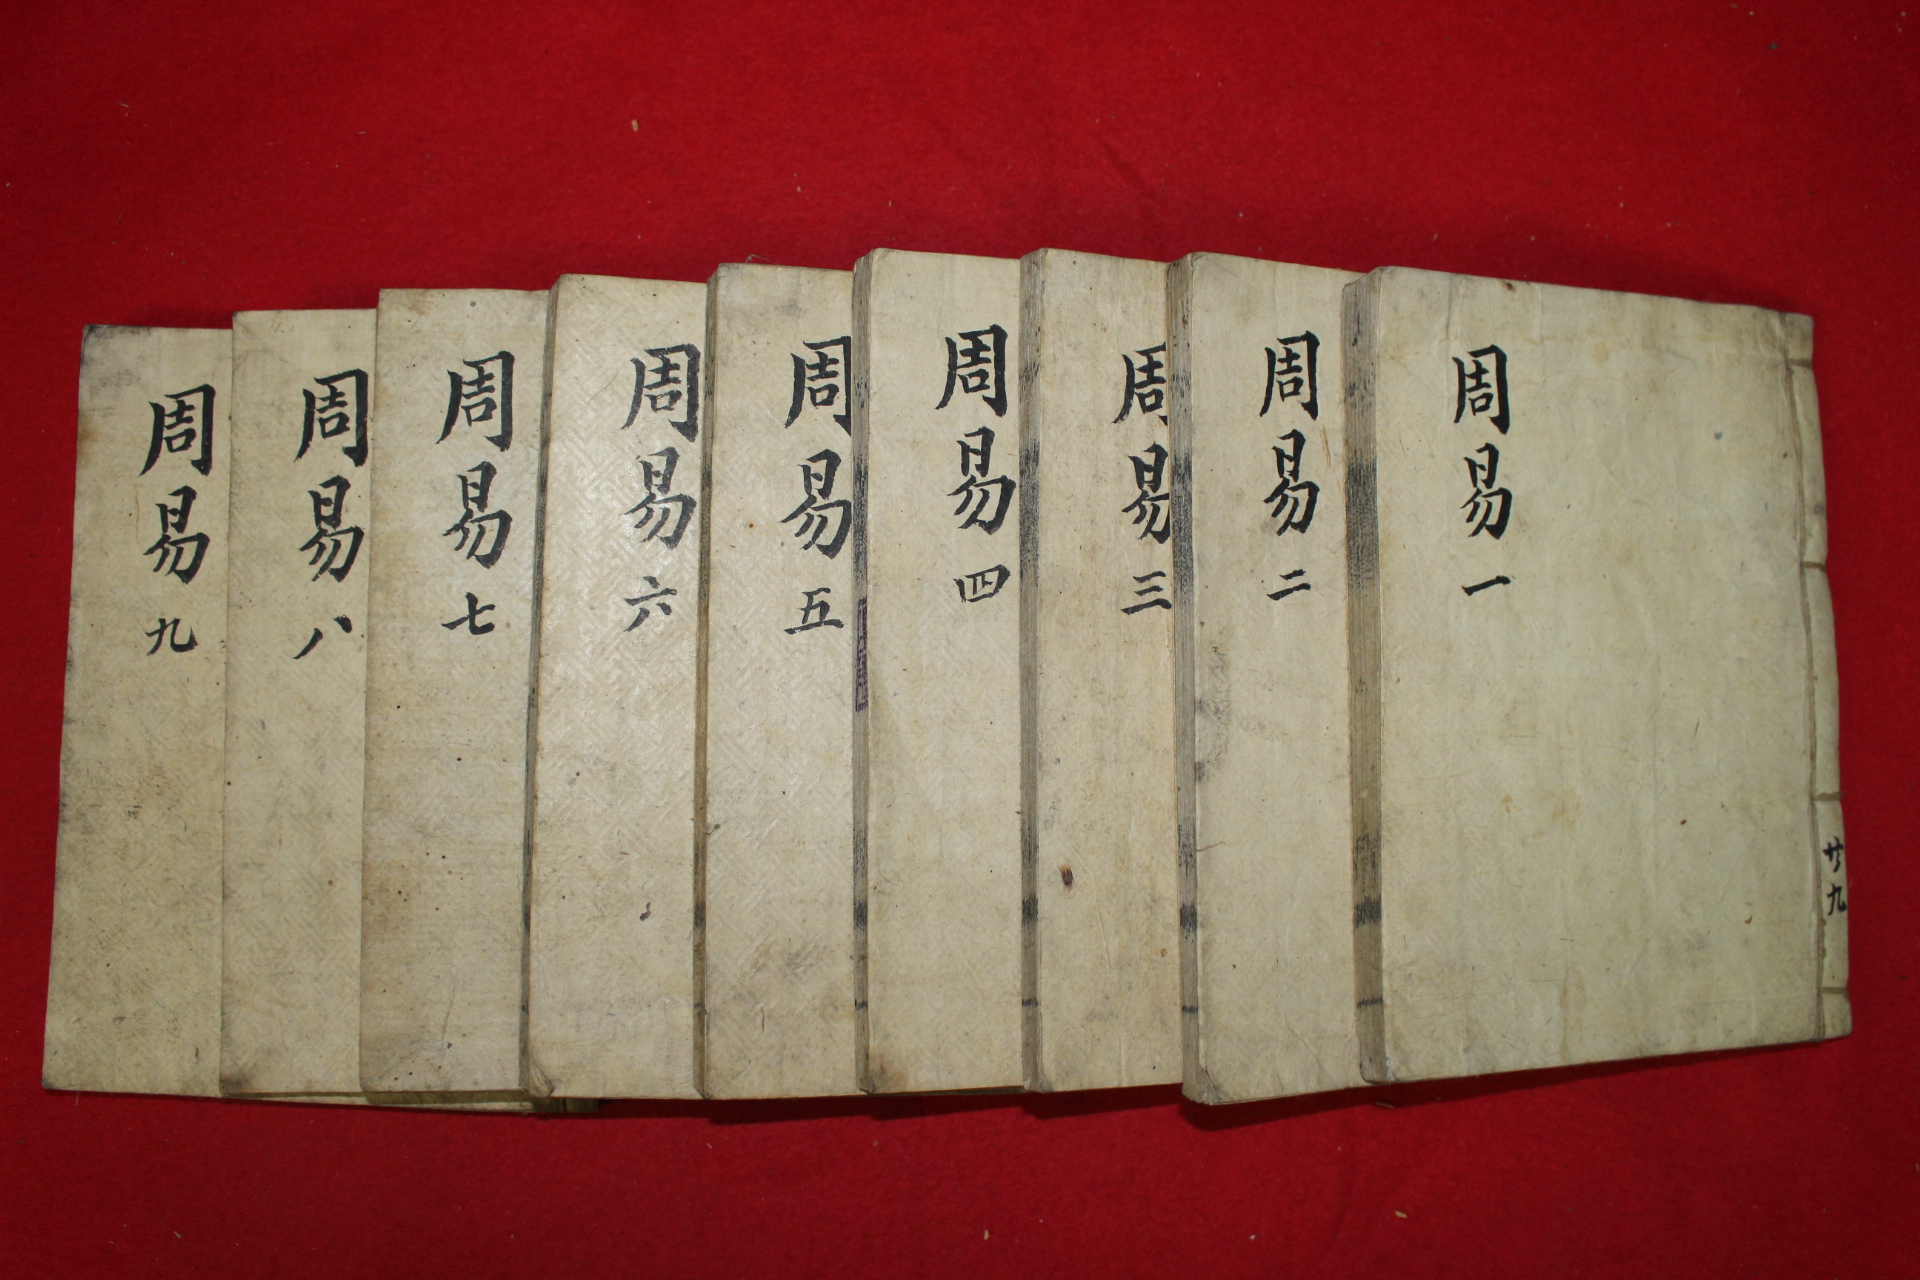 周易一
廿九
周易二
周易三
周易四
周易五
周易六
周易七
周易八
周易九